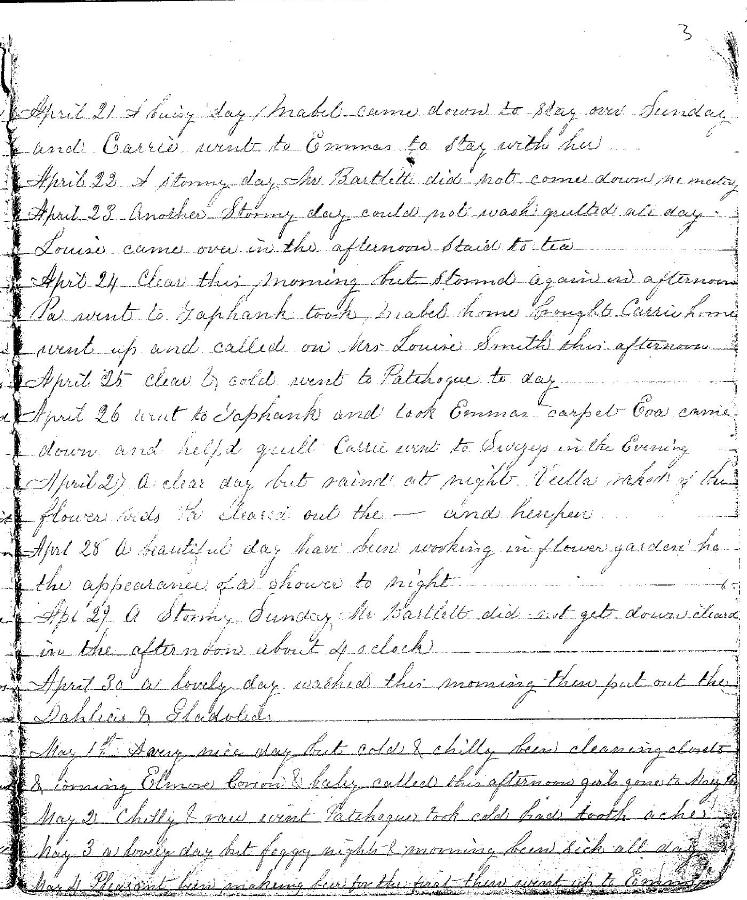 3
April 21 A busy day Mabel came down to stay over Sunday
and Carrie went to Emmas to stay with her
April 22 A stormy day Mr Bartlett did not come down no meeting
April 23 Another Stormy day could not wash quilted all day
Louise came over in the afternoon staid to tea
Aprl 24 Clear this morning but stormd again in afternoon
Pa went to Yaphank took Mabel home brought Carrie home
went up and called on Mrs Louise Smith this afternoon
April 25 clear & cold went to Patchogue to day
April 26 went to Yaphank and took Emmas carpet Eva came
down and helpd quilt Carrie went to Swezeys in the Evening
April 27 A clear day but raind at night of the
flower beds Pa cleard out the — and henpen
Aprl 28 A beautiful day have been working in flower garden ha
the appearance of a shower to night
Apl 29 A Stormy Sunday Mr Bartlett did not get down cleard
in the afternoon about 4 oclock
April 30 a lovely day washed this morning then put out the
Dahlias & Gladiolas
May 1st A very nice day but cold & chilly been cleaning closets
& ironing Elmore & baby called this afternoon girls gone to
May 2 Chilly & raw went Patchogue took cold had tooth ache
May 3 a lovely day but foggy nights & morning been sick all day
May 4 Pleasant been making for the first then went up to Emmas